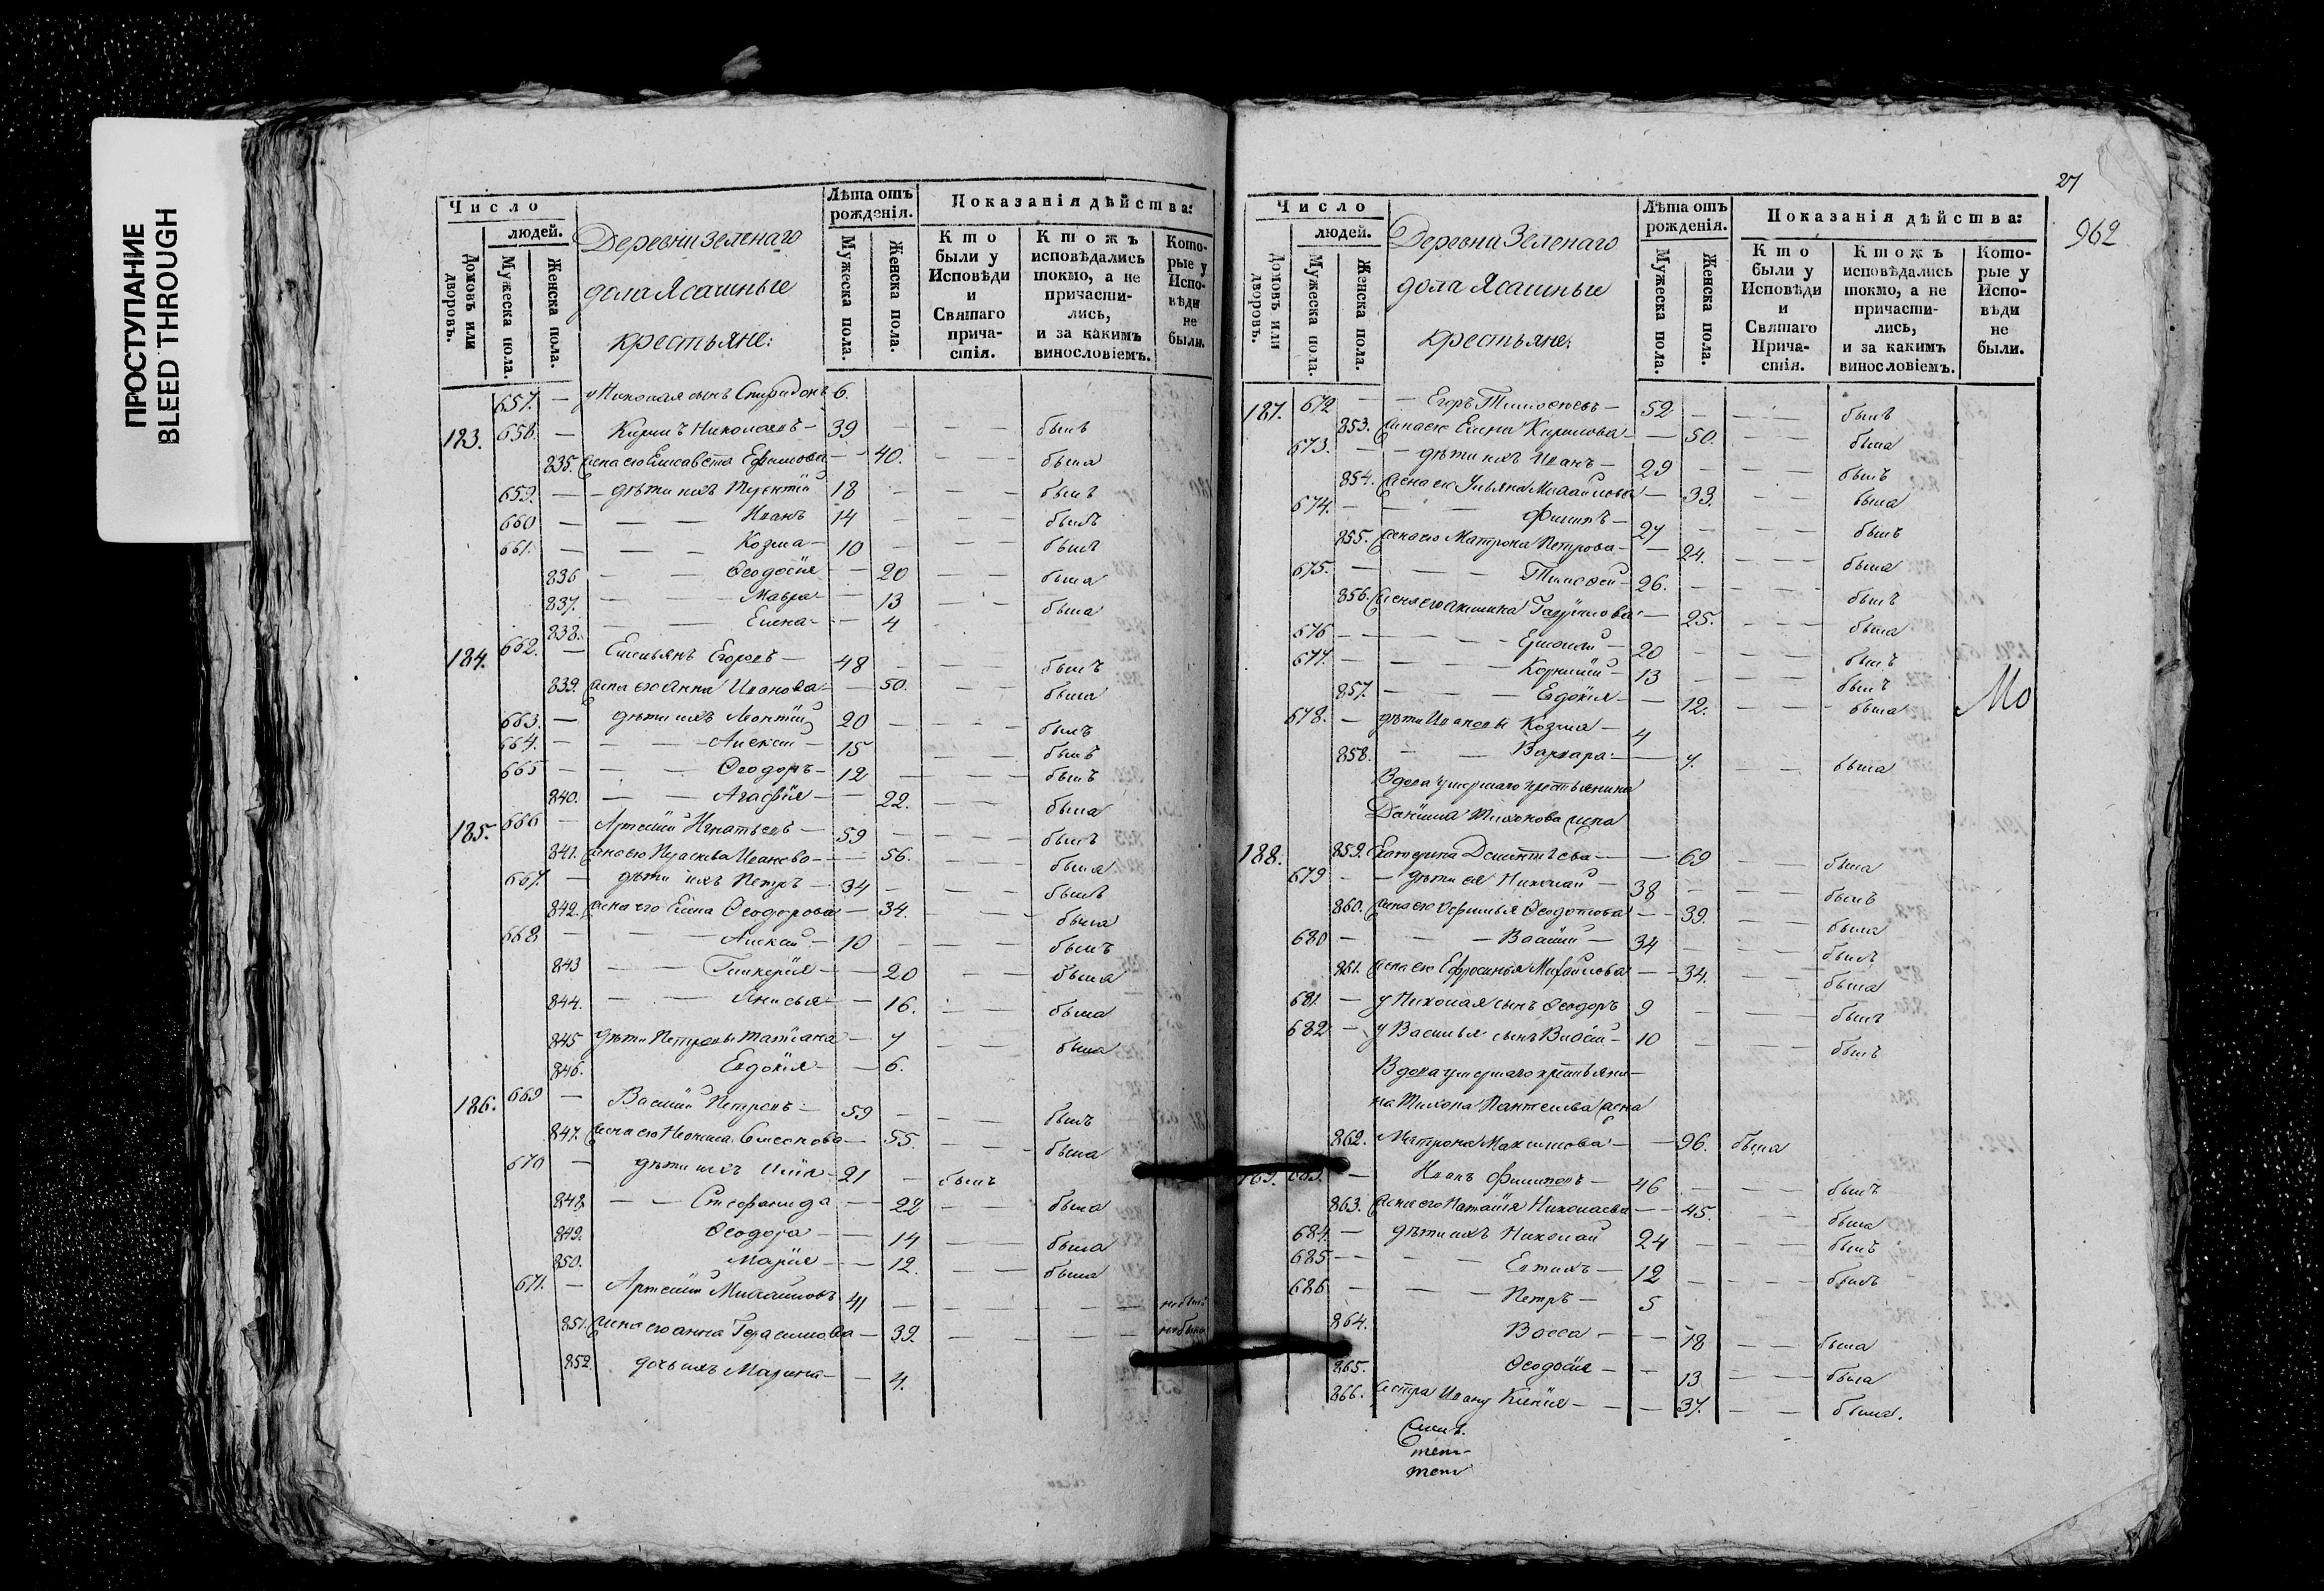 ПРОСТУПАНИЕ
BLEED THROUGH
Число
людей.
Домовъ или дворовъ.
Мужеска пола.
Женска пола.
Деревни Зеленаго
дола Ясашные
крестьяне:
Лѣта отъ рожденія.
Мужеска пола.
Женска пола.
Показанія дѣйства:
Кто были у Исповѣди и Святаго причастія.
Ктожъ исповѣдались токмо, а не причастились, и за какимъ винословіемъ.
Которые у Исповѣди не были.
657. — у Николая сынъ Спиридонъ 6.
183. 658. — Кирилъ Николаевъ — 39 — — — былъ
835. жена его Елисавета Ефимова — — 40. — — была
659. — — дѣти ихъ Терентій 18 — — — былъ
660 — — — Иванъ 14 — — — былъ
661. — — — Козма — 10 — — — былъ
836 — — Ѳеодосія — — 20 — — была
837. — — Мавра — — 13 — — была
838. — — Елена — — 4
184. 662. — Емельянъ Егоровъ — 48 — — — былъ
839. жена его Анна Иванова — — 50. — — была
663. — дѣти ихъ Леонтій 20 — — — былъ
664. — — — Алексѣй — 15 — — — былъ
665 — — — Ѳеодоръ — 12 — — — былъ
840. — — Агафія — — 22. — — была
185. 666 — Артемій Игнатьевъ — 59 — — — былъ
841. жена его Праскева Иванова — — 56. — — была
667. — дѣти ихъ Петръ — 34 — — — былъ
842. жена его Елена Ѳеодорова — 34. — — была
668 — — — Алексѣй — 10 — — — былъ
843 — — Гликерія — — 20 — — была
844. — — Анисья — — 16. — — была
845 дѣти Петровы Татіана — 7 — — была
846. Евдокія — — 6.
186. 669 — Василій Петровъ — 59 — — — былъ
847. жена его Неонила Симеонова — 55. — — была
670 — дѣти ихъ Илія — 21 — былъ
848. — — Стефанида — 22 — — была
849. Ѳеодора — — 14 — — была
850. Марія — — 12. — — была
671. — Артемій Михайловъ 41 — — — — — не былъ
851. жена его Анна Герасимова — 39. — — — — не была
852. дочь ихъ Марина — — 4.
27
962
Число
людей.
Домовъ или дворовъ.
Мужеска пола.
Женска пола.
Деревни Зеленаго
дола Ясашные
крестьяне:
Лѣта отъ рожденія.
Мужеска пола.
Женска пола.
Показанія дѣйства:
Кто были у Исповѣди и Святаго Причастія.
Ктожъ исповѣдались токмо, а не причастились, и за какимъ винословіемъ.
Которые у Исповѣди не были.
187. 672 — — Егоръ Тимоѳеевъ — 52 — — — былъ
853. жена его Елена Кирилова — — 50. — — была
673. — — дѣти ихъ Иванъ — 29 — — — былъ
854. жена его Ульяна Михайлова — 33. — — была
674. — — — Филипъ — 27 — — — былъ
855. жена его Матрона Петрова — — 24. — — была
675. — — — Тимоѳей — 26. — — — былъ
856. жена его Акилина Гавріилова — 25. — — была
676 — — — Ермолай — 20 — — — былъ
677. — — — Корнилій — 13 — — — былъ
857. — — — Евдокія — — 12. — — была
Мо
678. — дѣти Ивановы Козма — 4
858. — — Варвара — — 7. — — была
Вдова умершаго крестьянина
Даніила Тихонова жена
188. 859. Екатерина Дементьева — — 69 — — была
679 — — дѣти ея Николай — 38 — — — былъ
860. жена его Евфимья Ѳеодотова — — 39. — — была
680 — — — Василій — 34 — — — былъ
861. жена его Ефросинья Михайлова — — 34. — — была
681. — у Николая сынъ Ѳеодоръ 9 — — былъ
682 — у Василья сынъ Власій — 10 — — былъ
Вдова умершаго крестьяни-
на Тихона Пантелева жена
862. Матрона Максимова — — 96. была
189. 683. — Иванъ Филиповъ — 46 — — — былъ
863. жена его Наталія Николаева — — 45. — — была
684. — дѣти ихъ Николай 24 — — — былъ
685 — — — Евтихъ — 12 — — — былъ
686 — — — Петръ — 5
864. Васса — — — 18 — — была
865. Ѳеодосія — — 13 — — была
866. Сестра Ивану Ксенія — — — 37. — — была.